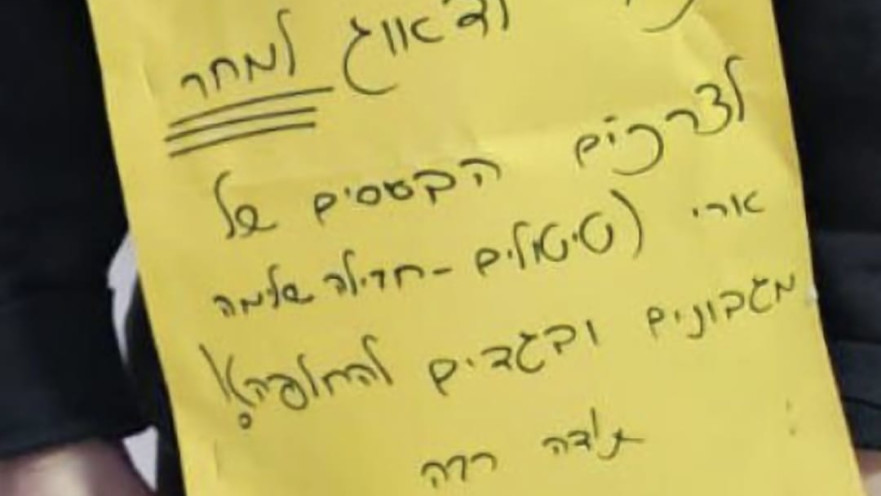 לדאוג למחר
לצרכים הבסיסים של
אורי (טיטולים - חבילה שלמה
מגבונים ובגדים להחלפה)!
תודה רבה